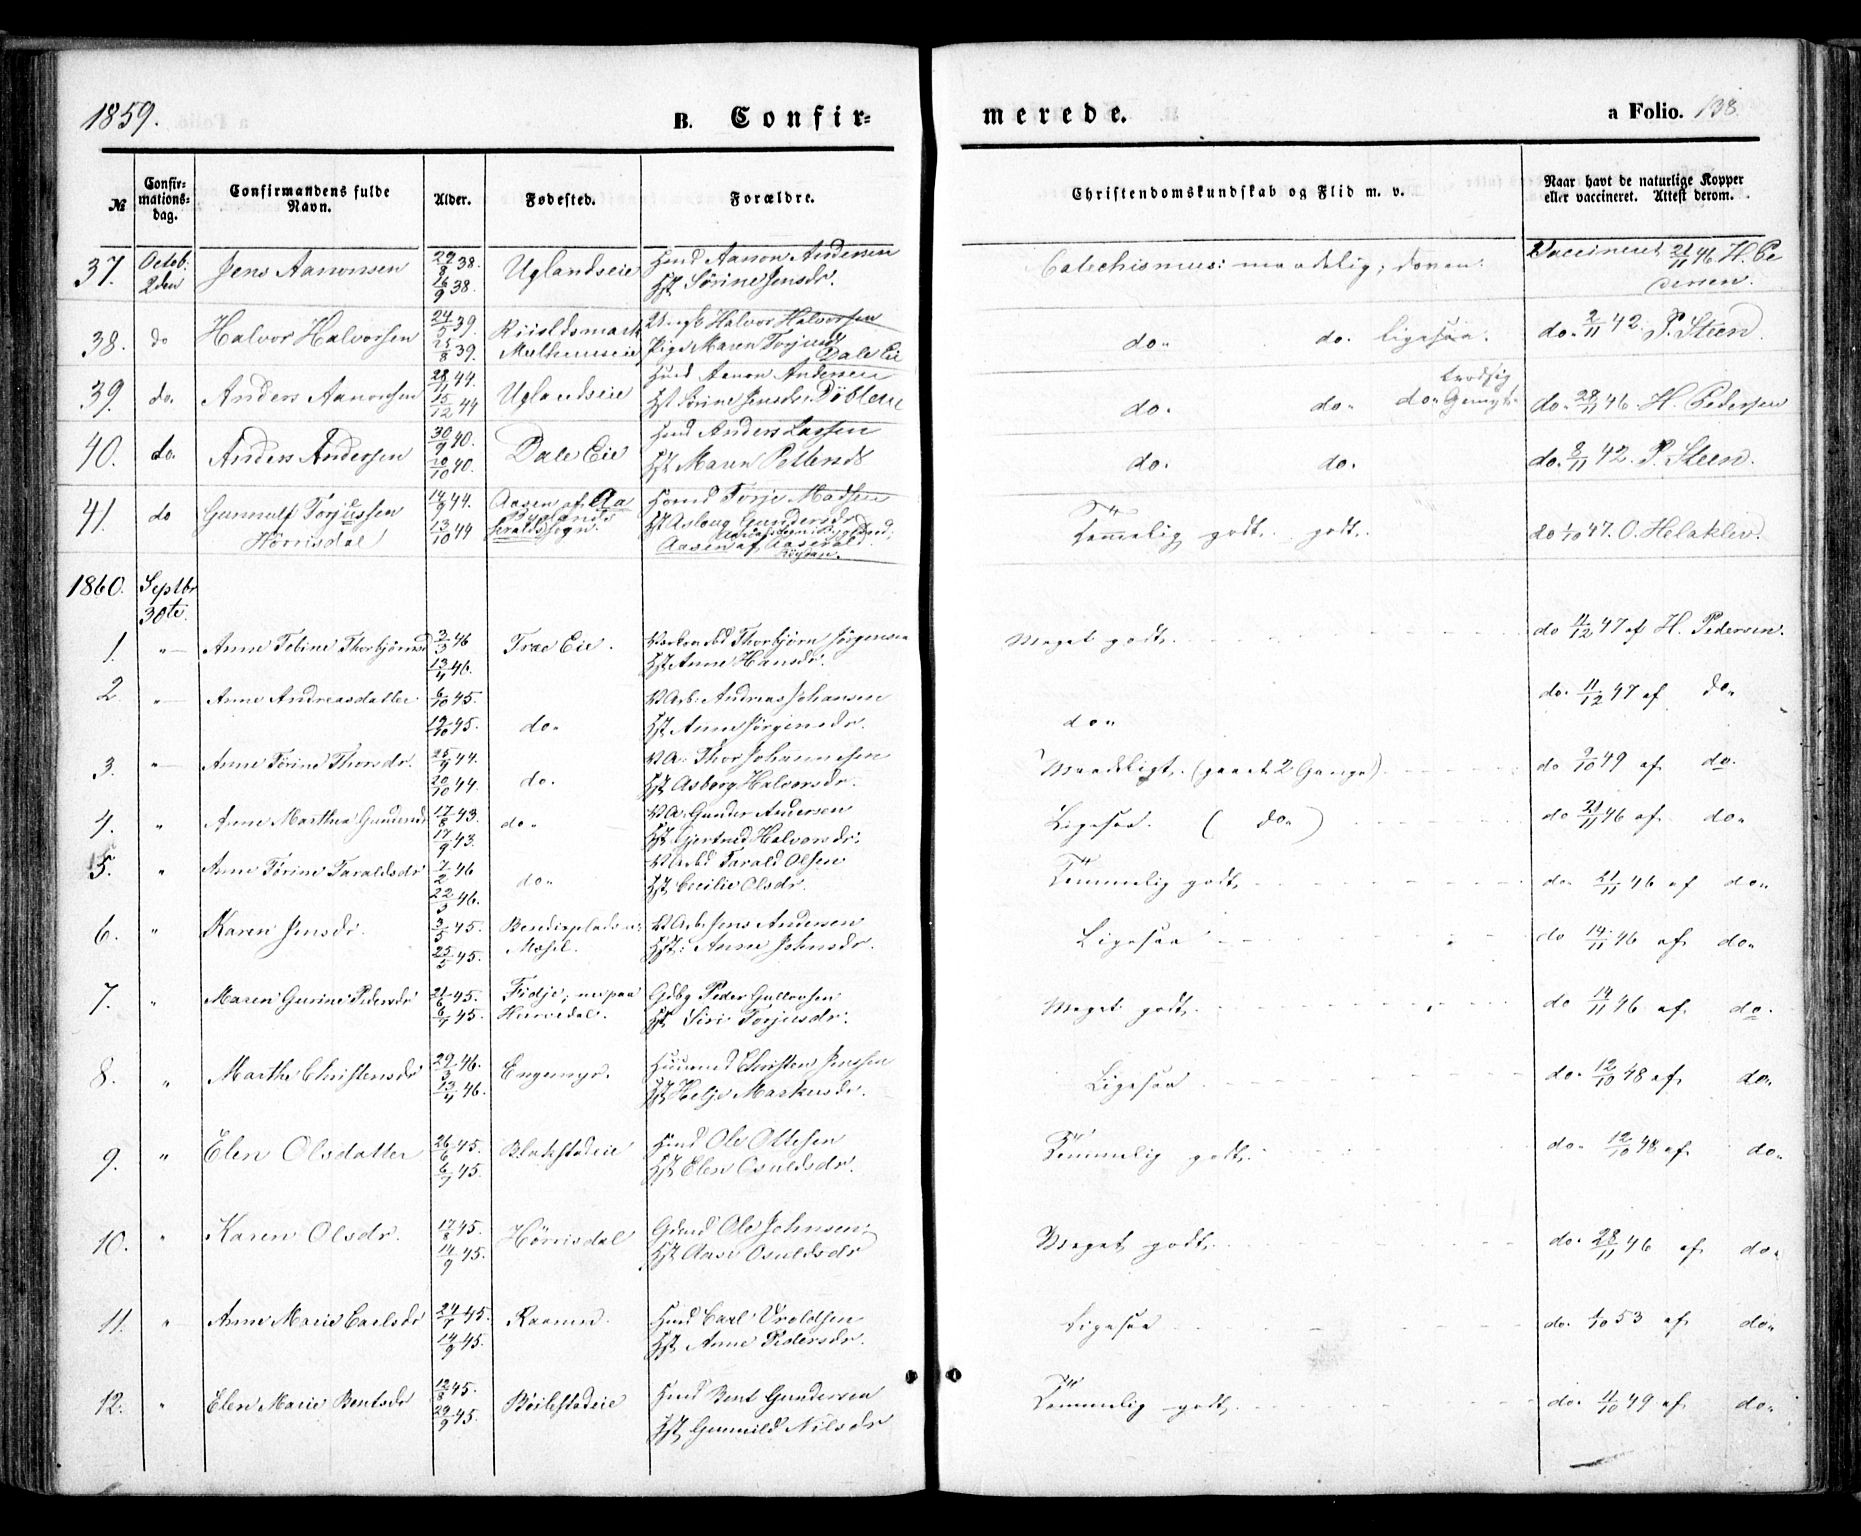 1859.
B. Confir-
merede.
a Folio. 138.
№
Confir-
mations-
dag.
Confirmandens fulde
Navn.
Alder.
Fødested.
Forældre.
Christendomskundskab og Flid m. v.
Naar havt de naturlige Kopper
eller vaccineret. Attest derom.
37. Octob. 2den Jens Aanonsen 29/8 38. 16/9 38. Uglandseie
Hmd Aanon Andersen
Hst. Sørine Jensdr.
Catechismus: maadelig;
Vaccineret 21/11 46 H. Pe
dersen.
38. do Halvor Halvorsen 24/5 39. 25/8 39.
Ungk Halvor Halvorsen
Pige Maren Torjusd Dale Eie
do. do. ligesaa.
do. 2/11 42. P. Steen.
39. do. Anders Aanonsen 28/11 44. 15/12 44 Uglandseie
Hmd Aanon Andersen
Hst Sørine Jensdr.
do. do. do.
do. 28/11 46. H. Pedersen
40. do. Anders Andersen 30/9 40. 10/10 40. Dale Eie
Hmd Anders Larsen
Hst. Maren Pettersd
do. do.
do. 2/11 42. P. Steen.
41. do Gunnulf Torjussen
Hørrisdal
14/9 44. 13/10 44
Hmd Torje Madsen
Hst Aslaug Gundersdr
Temmelig godt. godt.
do 1/10 47. O. Helaklev.
1860. Septbr
30te.
1. Anne Tobine Thorbjørnsd 3/3 46 13/4 46. Trae Eie.
Thorbjørn Jørgensen
Hst Anne Hansdr.
Meget godt.
do 4/12 47 af H. Pedersen.
2 Anne Andreasdatter 6/10 45. 19/10 45. do.
V Arb: Andreas Johansen
Hst Anne Jørgensdr.
do.
do. 11/12 47 af do
3. Anne Tørine Thorsdr. 25/9 44. 20/10 44. do.
V A. Thor Johannesen
Hst Asborg Halvorsdr.
Maadeligt. (gaaet 2 Gange)
do 2/10 49 af do.
4. Anne Marthea Gundersd 17/8 43. 17/9 43. do.
V A. Gunder Andersen
Hst Gjertrud Halvorsdr.
Ligesaa. ( do. )
do 21/11 46 af do.
5. Anne Tørine Taraldsdr 7/2 46 22/3 46. do.
V Arbd Tarald Olsen
Hst. Cecilie Olsdr.
Temmelig godt.
do. 21/11 46 af do.
6. Karen Jensdr. 3/5 45. 25/5 45.
V Arb. Jens Andersen
Hst: Anne Johnsdr.
Ligesaa
do 14/11 46 af do.
7. Maren Gurine Pedersdr 21/6 45. 6/7 45. Fidje,
Gdbg Peder Gullovsen
Hst Siri Torjusdr.
Meget godt.
do 14/11 46 af do.
8. Marthe Christensdr 29/3 46. 13/4 46. Engemyr.
Huusmd Christen Jensen
Hst Helje Markusdr.
Ligesaa
do. 12/10 48 af do.
9. Elen Olsdatter 26/6 45. 6/7 45. Blakstadeie
Hmd Ole Ottesen
Hst Elen Osuldsdr.
Temmelig godt.
do. 12/10 48 af do.
10. Karen Olsdr. 17/8 45. 14/9 45. Hørrisdal
Gdmd Ole Johnsen
Hst Aase Osuldsdr
Meget godt.
do. 28/11 46 af do.
11. Anne Marie Carlsdr 24/7 45. 14/9 45.
Hmd Carl Vroldsen
Hst Anne Pedersdr.
Ligesaa
do. 1/10 53 af do.
12. Elen Marie Bentsdr 12/8 45. 29/9 45. Bøilestadeie
Hmd Bent Gundersen
Hst. Gunnild Nilsdr
Temmelig godt.
do. 4/10 49 af do.